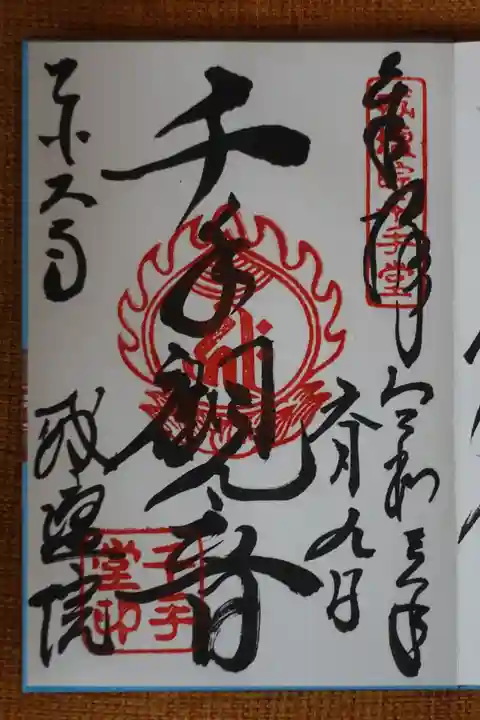 奉拝
戒壇院千手堂
令和三年
六月九日
千手観音
千手堂印
東大寺
戒壇院